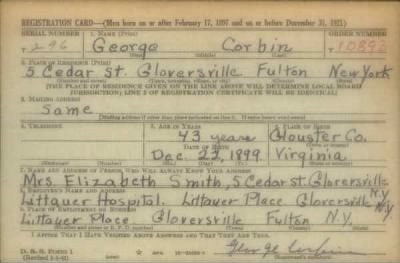 REGISTRATION CARD—(Men born on or after February 17, 1897 and on or before December 31, 1921)
SERIAL NUMBER 1. NAME (Print) ORDER NUMBER
T 296 George Corbin 10892
(First) (Middle) (Last)
2. PLACE OF RESIDENCE (Print)
5 Cedar St. Gloversville Fulton New York
(Number and street) (Town, township, village, or city) (County) (State)
[THE PLACE OF RESIDENCE GIVEN ON THE LINE ABOVE WILL DETERMINE LOCAL BOARD
JURISDICTION; LINE 2 OF REGISTRATION CERTIFICATE WILL BE IDENTICAL]
3. MAILING ADDRESS
Same
[Mailing address if other than place indicated on line 2. If same insert word same]
4. TELEPHONE 5. AGE IN YEARS 6. PLACE OF BIRTH
43 years Glouster Co.
DATE OF BIRTH (Town or county)
Dec. 22, 1899 Virginia
(Exchange) (Number) (Mo.) (Day) (Yr.) (State or country)
7. NAME AND ADDRESS OF PERSON WHO WILL ALWAYS KNOW YOUR ADDRESS
Mrs Elizabeth Smith, 5 Cedar st. Gloversville N.Y.
8. EMPLOYER'S NAME AND ADDRESS
Littauer Hospital. Littauer Place Gloversville N.Y.
9. PLACE OF EMPLOYMENT OR BUSINESS
Littauer Place Gloversville Fulton N.Y.
(Number and street or R. F. D. number) (Town) (County) (State)
I AFFIRM THAT I HAVE VERIFIED ABOVE ANSWERS AND THAT THEY ARE TRUE.
D. S. S. FORM 1
George Corbin